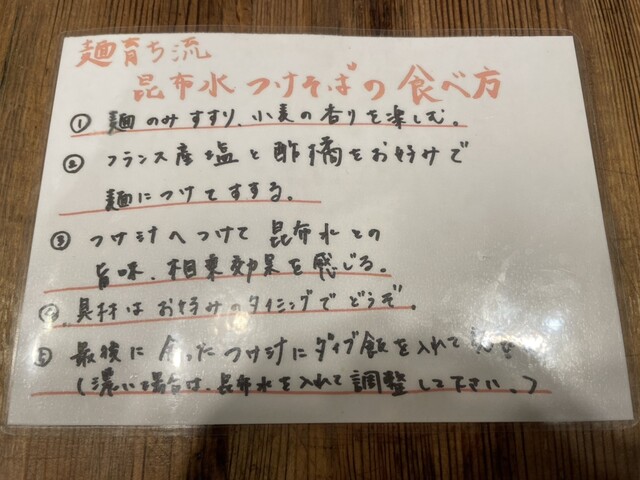 麺育ち流
昆布水つけそばの食べ方
① 麺のみすすり、小麦の香りを楽しむ。
② フランス産塩と酢橘をお好みで
麺につけてすする。
③ つけ汁へつけて昆布水との
旨味、相乗効果を感じる。
④ 具材はお好みのタイミングでどうぞ。
⑤ 最後に余ったつけ汁にダイブ飯を入れて
(濃い場合は、昆布水を入れて調整して下さい。)